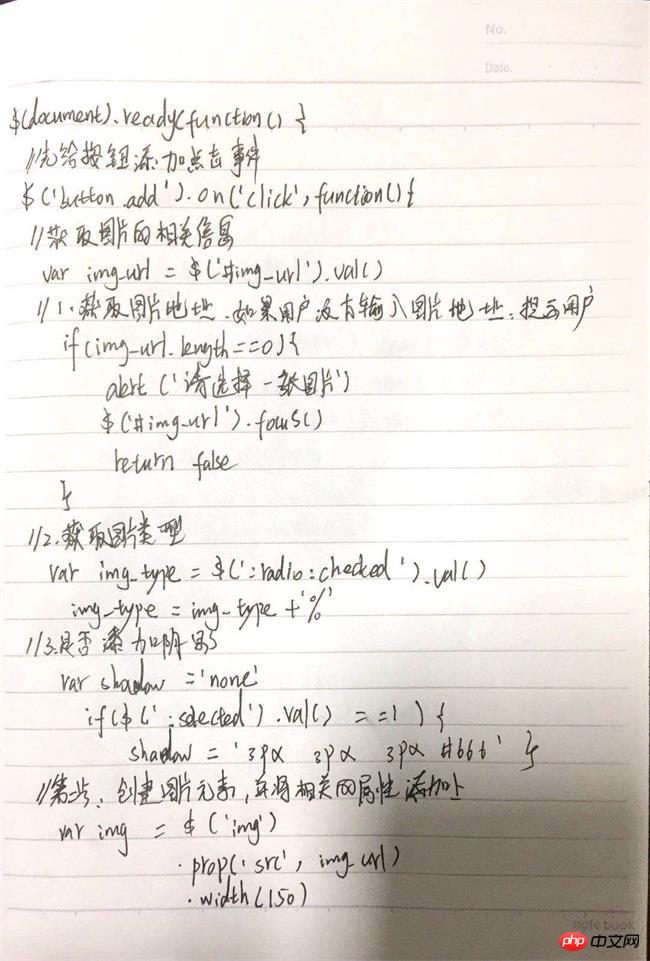 No.
Date.
$(document).ready(function() {
//先给按钮添加点击事件
$('button.add').on('click', function(){
//获取图片的相关信息
var img_url = $('#img_url').val()
//1.获取图片地址.如果用户没有输入图片地址.提示用户
if(img_url.length==0){
alert('请选择一张图片')
$('#img_url').focus()
return false
}
//2.获取图片类型
var img_type = $(':radio:checked').val()
img_type = img_type +'%'
//3.是否添加阴影
var shadow ='none'
if($(':selected').val() ==1) {
shadow = '3px 3px 3px #666' }
//第二步:创建图片元素,并将相关的属性添加上
var img = $('img')
.prop('src', img_url)
.width(150)
note book
php 中文网